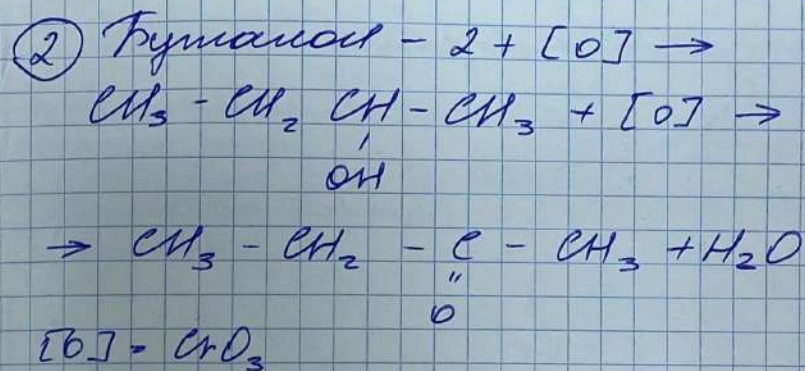 2 Бутанол - 2 + [O] →
CH3 - CH2 CH - CH3 + [O] →
OH
→ CH3 - CH2 - C - CH3 + H2O
O
[O] - CrO3